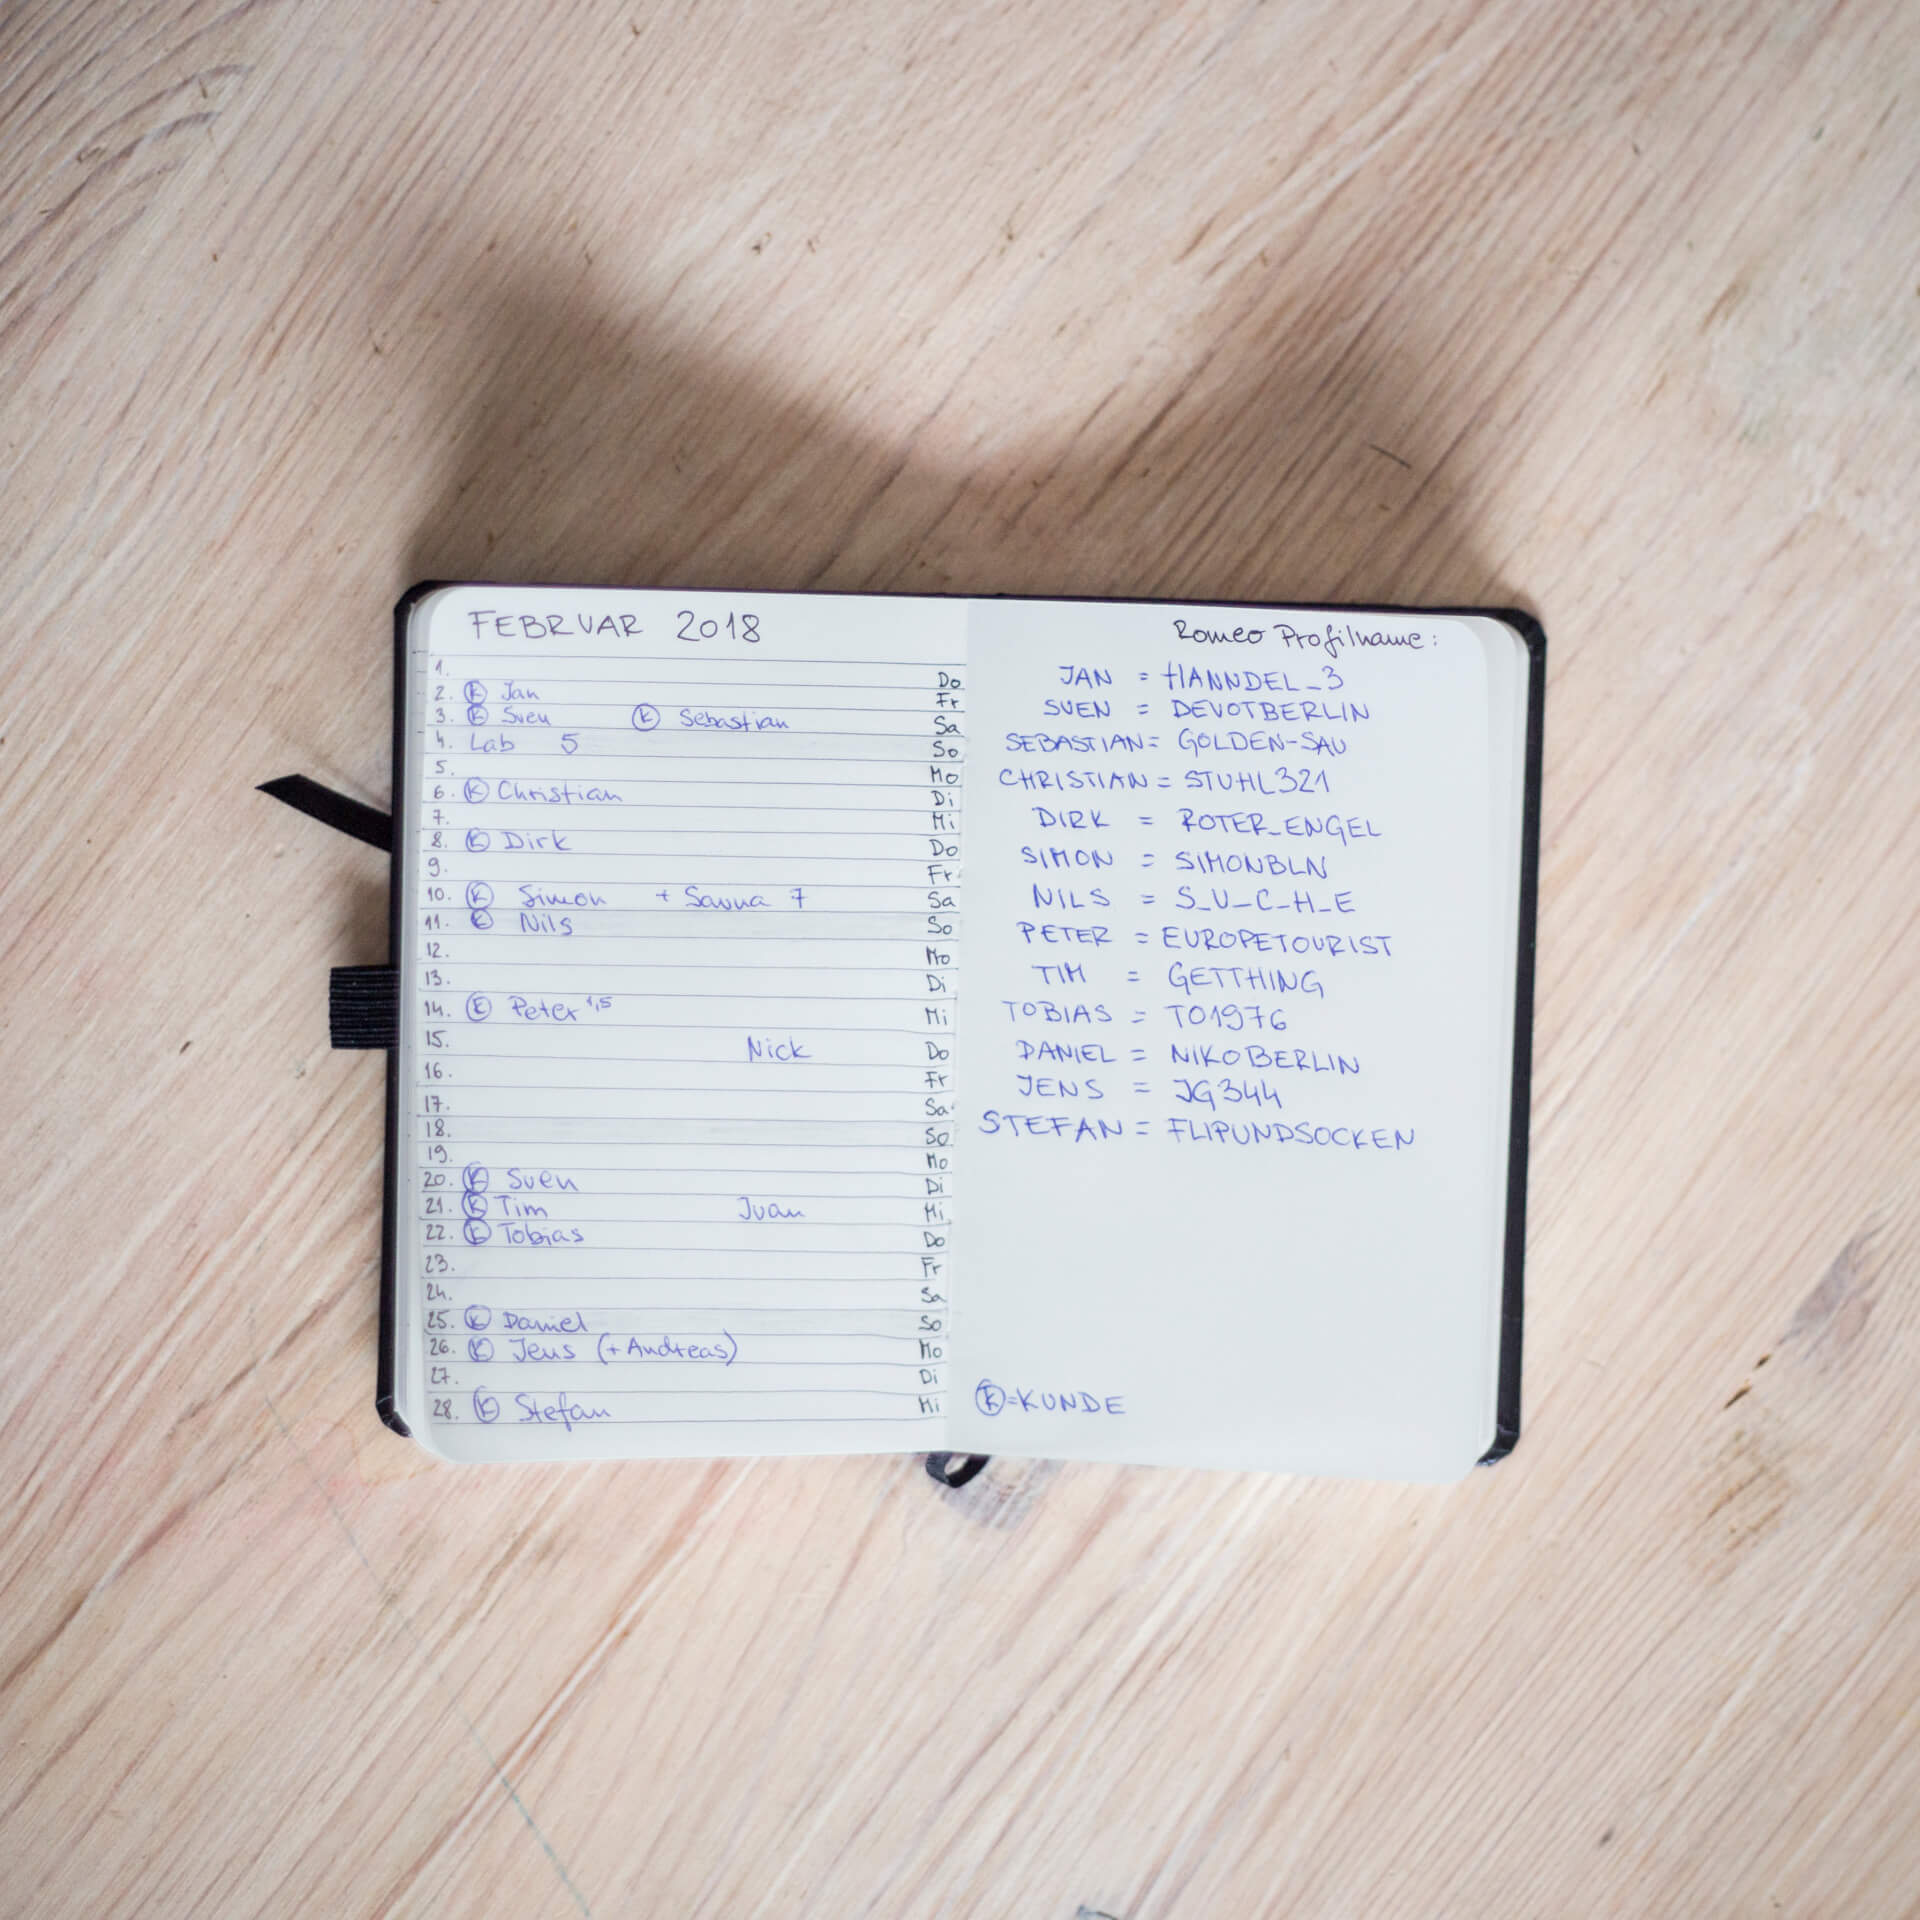 FEBRUAR 2018
1. Do
2. Ⓚ Jan Fr
3. Ⓚ Sven Ⓚ Sebastian Sa
4. Lab 5 So
5. Mo
6. Ⓚ Christian Di
7. Mi
8. Ⓚ Dirk Do
9. Fr
10. Ⓚ Simon + Sauna 7 Sa
11. Ⓚ Nils So
12. Mo
13. Di
14. Ⓚ Peter 1,5 Mi
15. Nick Do
16. Fr
17. Sa
18. So
19. Mo
20. Ⓚ Sven Di
21. Ⓚ Tim Juan Mi
22. Ⓚ Tobias Do
23. Fr
24. Sa
25. Ⓚ Daniel So
26. Ⓚ Jens (+ Andreas) Mo
27. Di
28. Ⓚ Stefan Mi
Romeo Profilname:
JAN = HANNDEL_3
SVEN = DEVOTBERLIN
SEBASTIAN = GOLDEN-SAU
CHRISTIAN = STUHL321
DIRK = ROTER_ENGEL
SIMON = SIMONBLN
NILS = S_U_C_H_E
PETER = EUROPETOURIST
TIM = GETTHING
TOBIAS = TO1976
DANIEL = NIKOBERLIN
JENS = JG344
STEFAN = FLIPUNDSOCKEN
Ⓚ=KUNDE